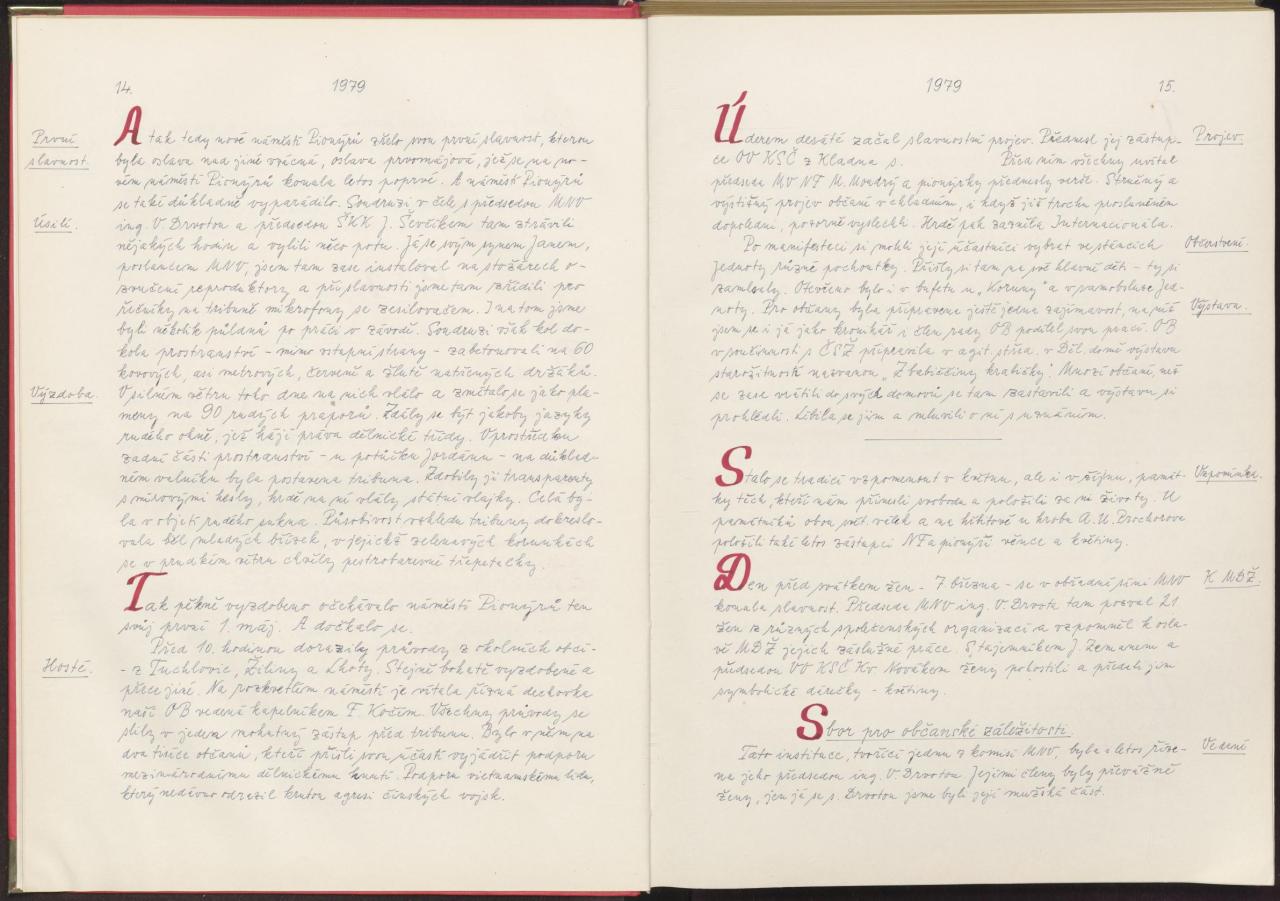 14. 1979
První slavnost.
A tak tedy nové náměstí Pionýrů zřelo svou první slavnost, kterou
byla oslava nad jiné vzácná, oslava prvomájová, jež se na no-
vém náměstí Pionýrů konala letos poprvé. A náměstí Pionýrů
se také důkladně vyparádilo. Soudruzi v čele s předsedou MNV
Úsilí.
ing. V. Drvotou a předsedou ŠKK J. Ševčíkem tam strávili
nějakých hodin a vylili něco potu. Já se svým synem Janem,
poslancem MNV, jsem tam zase instaloval na stožárech o-
zvučení reproduktory a při slavnosti jsme tam zřídili pro
řečníky na tribuně mikrofony se zesilovačem. I na tom jsme
byli několik půldnů po práci v závodě. Soudruzi však kol do-
kola prostranství - mimo vstupní strany - zabetonovali na 60
kovových, asi metrových, červeně a žlutě natřených držáků.
Výzdoba.
V silném větru toho dne na nich vlálo a zmítalo se jako pla-
meny na 90 rudých praporů. Zdály se být jakoby jazyky
rudého ohně, jež hájí práva dělnické třídy. Uprostřed
zadní části prostranství - u potůčku Jordánu - na důklad-
ném valníku byla postavena tribuna. Zdobily ji transparenty
s mírovými hesly, hrdě na ní vlály státní vlajky. Celá by-
la v objetí rudého sukna. Působivost vzhledu tribuny dokreslo-
vala běl mladých břízek, v jejichž zelenavých korunkách
se v prudkém větru chvěly pestrobarevné třepetalky.
Tak pěkně vyzdobeno očekávalo náměstí Pionýrů ten
svůj první 1. máj. A dočkalo se.
Před 10. hodinou dorazily průvody z okolních obcí -
Hosté.
- z Tuchlovic, Žiliny a Lhoty. Stejně bohatě vyzdobené a
přece jiné. Na rozkvetlém náměstí je vítala řízná dechovka
naší OB vedená kapelníkem F. Kočím. Všechny průvody se
slily v jeden mohutný zástup před tribunu. Bylo v něm na
dva tisíce občanů, kteří přišli svou účastí vyjádřit podporu
mezinárodnímu dělnickému hnutí. Podporu vietnamskému lidu,
který nedávno odrazil krutou agresi čínských vojsk.
1979 15.
Úderem desáté začal slavnostní projev. Přednesl jej zástup-
Projev.
ce OV KSČ z Kladna s. Před ním všechny uvítal
předseda MV NF M. Moudrý a pionýrky přednesly verše. Stručný a
výstižný projev občané v chladném, i když již trochu prosluněném
dopoledni, pozorně vyslechli. Hrdě pak zazněla Internacionála.
Po manifestaci si mohli její účastníci vybrat ve stáncích
Občerstvení.
Jednoty různé pochoutky. Přišly si tam na své hlavně děti - ty si
zamlsaly. Otevřeno bylo i v bufetu u „Koruny" a v samoobsluze Jed-
noty. Pro občany byla připravena ještě jedna zajímavost, na níž
Výstava.
jsem se i já jako kronikář i člen rady OB podílel svou prací. OB
v součinnosti s ČSŽ připravila v agit. střed. v Děl. domě výstavu
starožitností nazvanou „Z babiččiny krabičky". Mnozí občané, než
se zase vrátili do svých domovů se tam zastavili a výstavu si
prohlédli. Líbila se jim a mluvili o ní s uznáním.
Stalo se tradicí vzpomenout v květnu, ale i v říjnu, památ-
Vzpomínka.
ky těch, kteří nám přinesli svobodu a položili za ni životy. U
pomníků obou svět. válek a na hřbitově u hrobu A. U. Prochorova
položili také letos zástupci NF a pionýři věnce a květiny.
Den před svátkem žen - 7. března - se v obřadní síni MNV
K MDŽ.
konala slavnost. Předseda MNV ing. V. Drvota tam pozval 21
žen z různých společenských organizací a vzpomněl k osla-
vě MDŽ jejich záslužné práce. S tajemníkem J. Zemanem a
předsedou VO KSČ Kv. Novákem ženy pohostili a předali jim
symbolické dárečky - květiny.
Sbor pro občanské záležitosti.
Tato instituce, tvořící jednu z komisí MNV, byla i letos říze-
Vedení
na jeho předsedou ing. V. Drvotou. Jejími členy byly převážně
ženy, jen já se s. Drvotou jsme byli její mužská část.